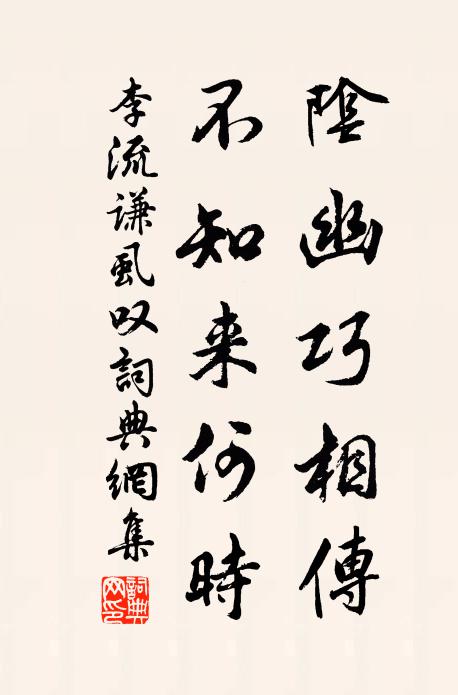 陰幽巧相傳
不知来何時
李流謙虱叹詞典網集
詞典网印